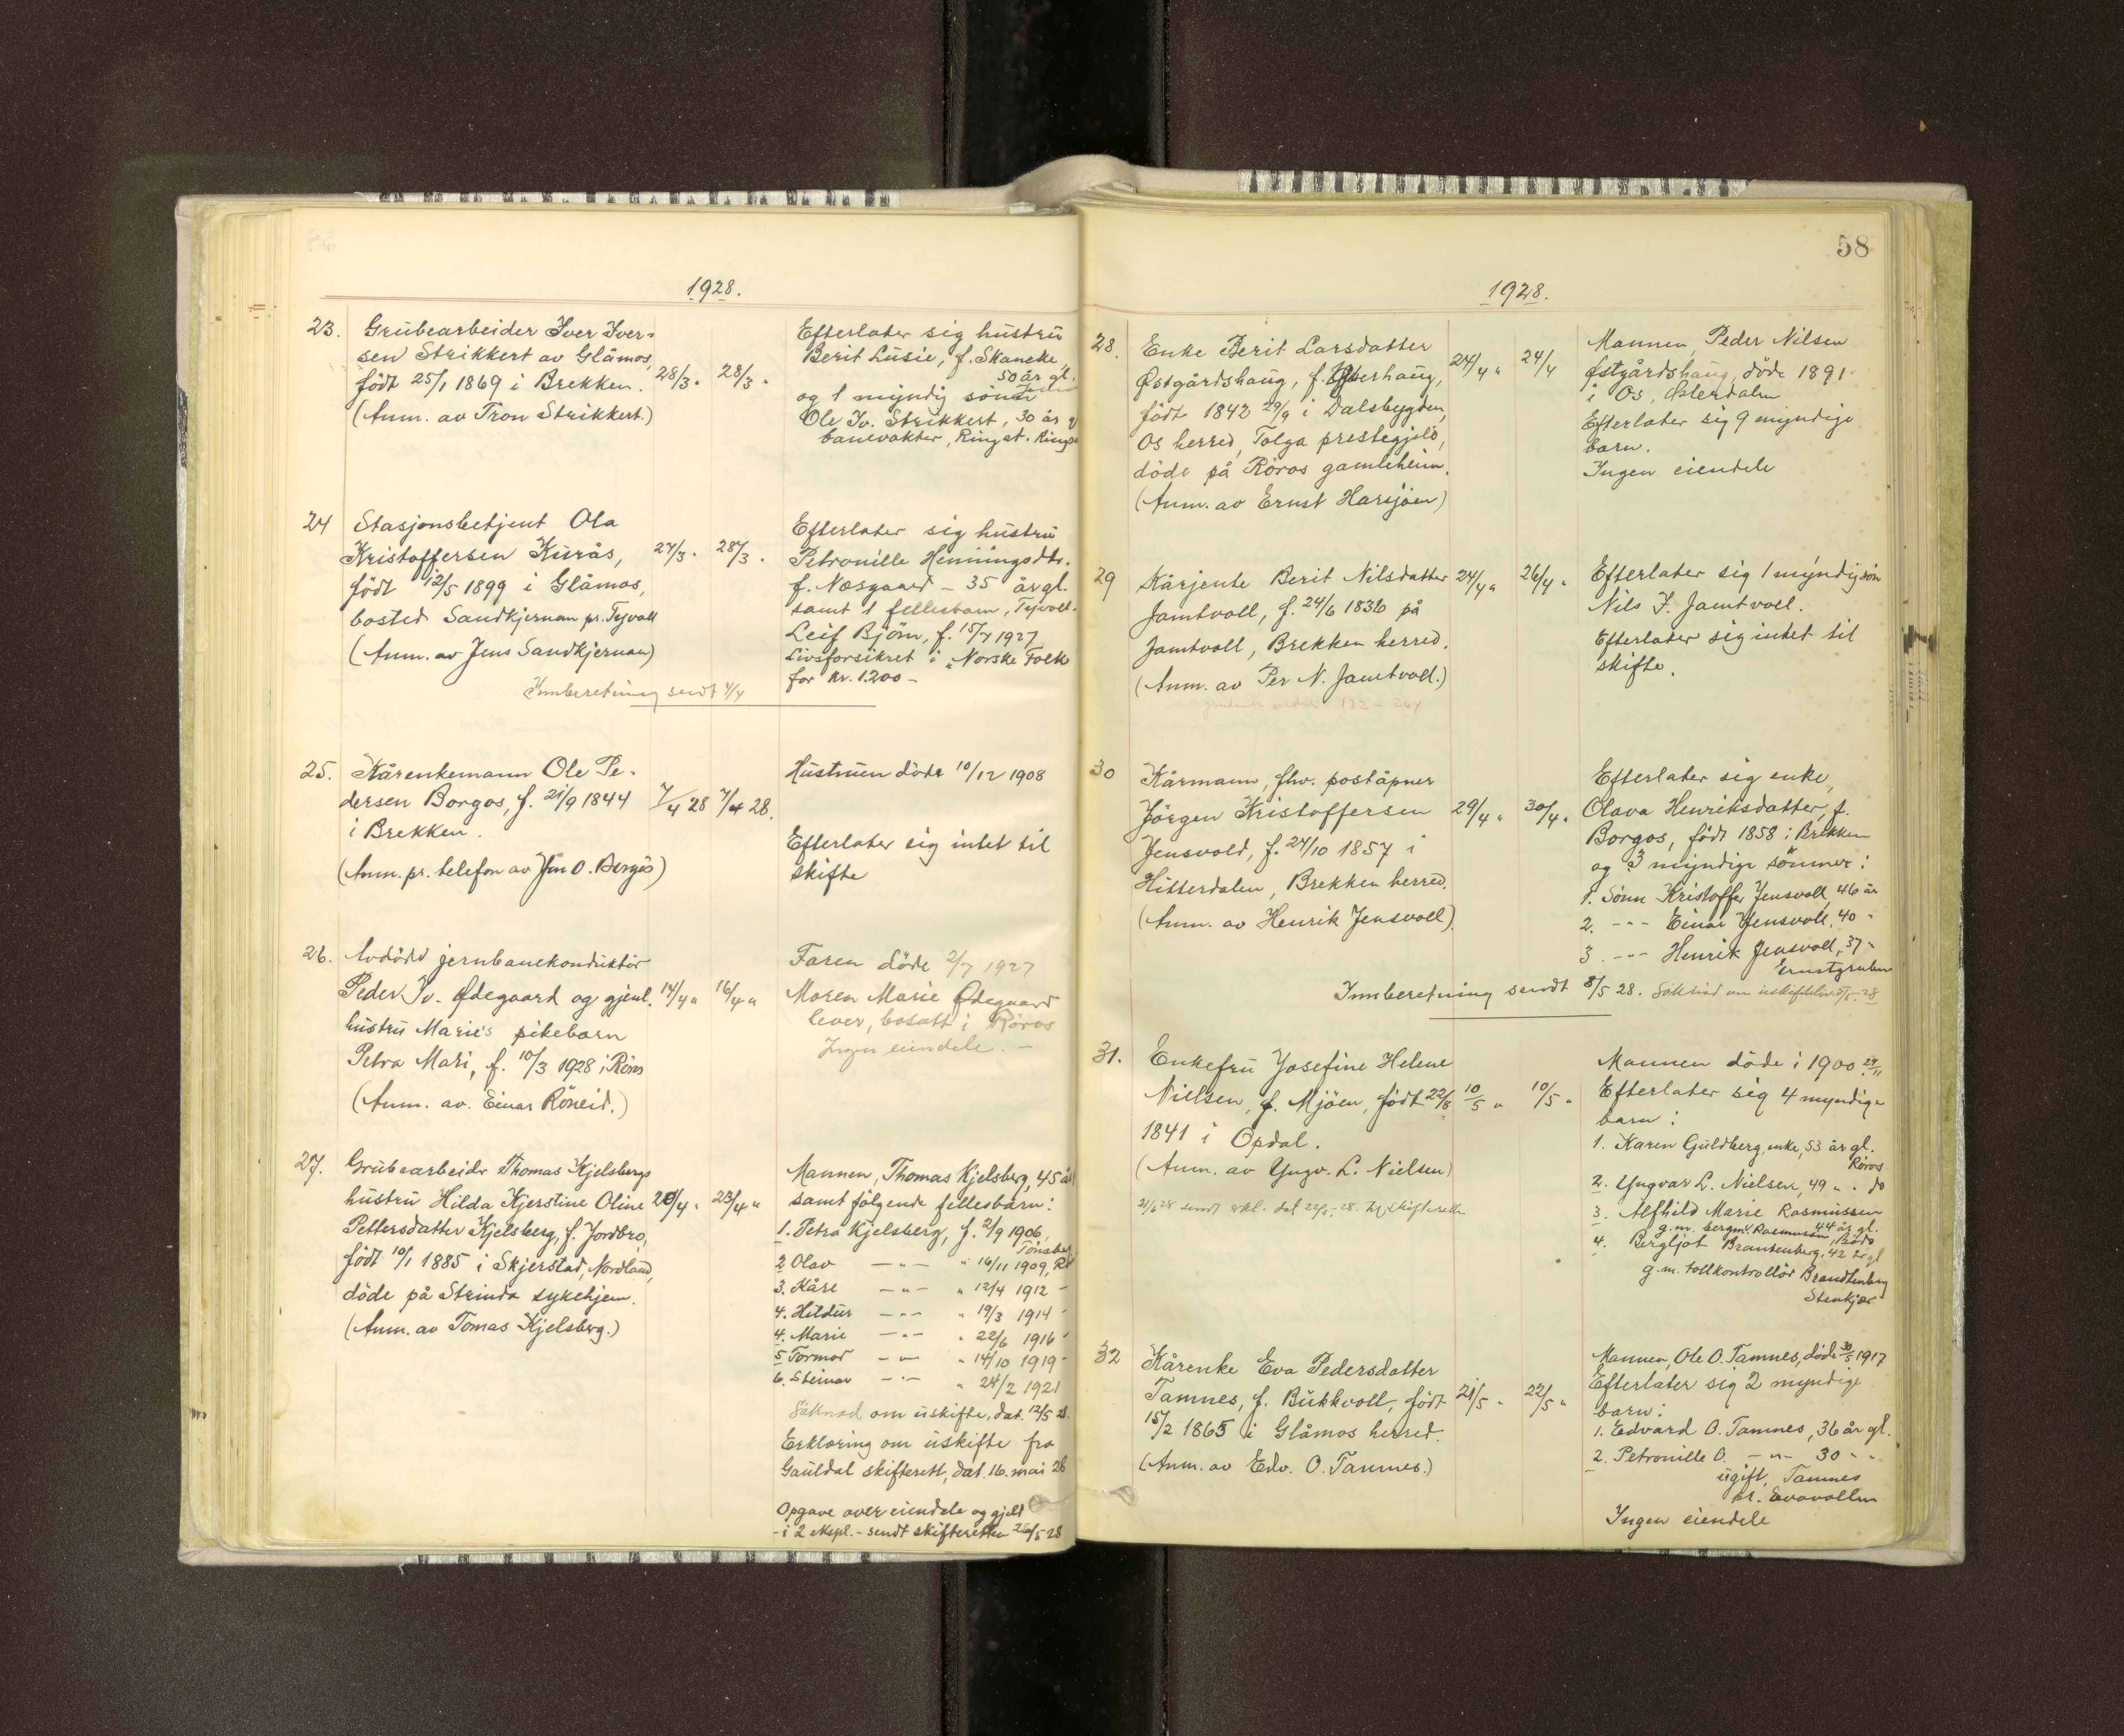 1928.
23. Grubearbeider Iver Iver-
sen Strikkert av Glåmos,
født 25/1 1869 i Brekken. 28/3. 28/3 "
(Anm. av Tron Strikkert.)
Efterlater sig hustru
Berit Lusie, f. Skancke,
50 år gl.
og 1 myndig sönn
Ole Iv. Strikkert, 30 år
banevokter, Ringst.
24 Stasjonsbetjent Ola
Kristoffersen Kurås, 27/3. 28/3.
født 12/5 1899 i Glåmos,
bosted Sandkjernan pr. Tyvoll
(Anm. av Jens Sandkjernan)
Innberetning sendt 4/4
Efterlater sig hustru
Petronille Henningsdtr.
f. Næsgaard - 35 år gl.
samt 1 fellesbarn, Tyvoll.
Leif Björn, f. 15/7 1927
Livsforsikret i "Norske Folk
for kr. 1.200 -
25. Kårenkemann Ole Pe-
dersen Borgos, f. 21/9 1844 7/4 28 7/4 28.
i Brekken.
(Anm. pr. telefon av Jon O. Borgos)
Hustruen döde 10/12 1908
Efterlater sig intet til
skifte
26. Avdöde jernbanekonduktör
Peder Iv. Ødegaard og gjenl. 14/4 " 16/4 "
hustru Marie's pikebarn
Petra Mari, f. 10/3 1928 i Röros
(Anm. av. Einar Röneid.)
Faren döde 2/7 1927
Moren Marie Ødegaard
lever, bosatt i Röros
Ingen eiendele. -
27. Grubearbeider Thomas Kjelsbergs
hustru Hilda Kjerstine Oline 20/4 " 23/4 "
Pettersdatter Kjelsberg, f. Jordbro,
født 10/1 1885 i Skjerstad, Nordland,
döde på Strinda sykehjem.
(Anm. av Tomas Kjelsberg.)
Mannen, Thomas Kjelsberg, 45 år
samt fölgende fellesbarn:
1. Petra Kjelsberg, f. 2/9 1906,
Tönsberg
2 Olav - " - " 16/11 1909,
3. Kåre - " - " 12/4 1912 -
4. Hildur - " - " 19/3 1914 -
4. Marie - " - " 22/6 1916 "
5 Tormod - " - " 14/10 1919 -
6. Steinar - " - " 24/2 1921
Söknad om uskifte, dat. 12/5 28.
Erklæring om uskifte fra
Gauldal skifterett, dat. 16. mai 28
Opgave over eiendele og gjeld
- i 2 ekspl. - sendt skifteretten 25/5 28
58
1928.
28. Enke Berit Larsdatter
Østgårdshaug, f. Øverhaug, 24/4 " 24/4
født 1842 29/9 i Dalsbygden,
Os herred, Tolga prestegjeld,
döde på Röros gamleheim.
(Anm. av Ernst Harsjöen)
Mannen, Peder Nilsen
Østgårdshaug, döde 1891.
i Os, Østerdalen
Efterlater sig 9 myndige
barn.
Ingen eiendele
29 Kårjente Berit Nilsdatter 24/4 " 26/4 "
Jamtvoll, f. 24/6 1836 på
Jamtvoll, Brekken herred.
(Anm. av Per N. Jamtvoll.)
Efterlater sig 1 myndig sön
Nils J. Jamtvoll.
Efterlater sig intet til
skifte.
30 Kårmann, fhv. poståpner
Jörgen Kristoffersen 29/4 " 30/4 "
Jensvold, f. 24/10 1857 i
Hitterdalen, Brekken herred.
(Anm. av Henrik Jensvoll).
Efterlater sig enke,
Olava Henriksdatter, f.
Borgos, født 1858 i Brekken
og 3 myndige sönner:
1. Sönn Kristoffer Jensvoll, 46 år
2. - " - Einar Jensvoll, 40 "
3. - " - Henrik Jensvoll, 37 "
Ernstgruben
Innberetning sendt 8/5 28. Söknad om uskifte
31. Enkefru Josefine Helene
Nielsen, f. Mjöen, født 22/8 10/5 " 10/5 "
1841 i Opdal.
(Anm. av Yngv. L. Nielsen)
21/6 28 sendt erkl. dat 22/5 28.
Mannen döde i 1900 29/11
Efterlater sig 4 myndige
barn:
1. Karen Guldberg, enke, 53 år gl.
Röros
2. Yngvar L. Nielsen, 49 " " do
3. Alfhild Marie Rasmussen
g.m. bergm. Rasmussen, 44 år gl. Bodö
4. Bergljot Brandtenberg, 42 år gl
g.m. tollkontrollör Brandtenberg
Stenkjær
32 Kårenke Eva Pedersdatter
Tamnes, f. Bukkvoll, født 21/5 " 22/5 "
15/2 1865 i Glåmos herred.
(Anm. av Edv. O. Tamnes.)
Mannen, Ole O. Tamnes, döde 30/5 1917
Efterlater sig 2 myndige
barn:
1. Edvard O. Tamnes, 36 år gl.
2. Petronille O. - " - 30 " "
ugift, Tamnes
pr. Evavollen
Ingen eiendele